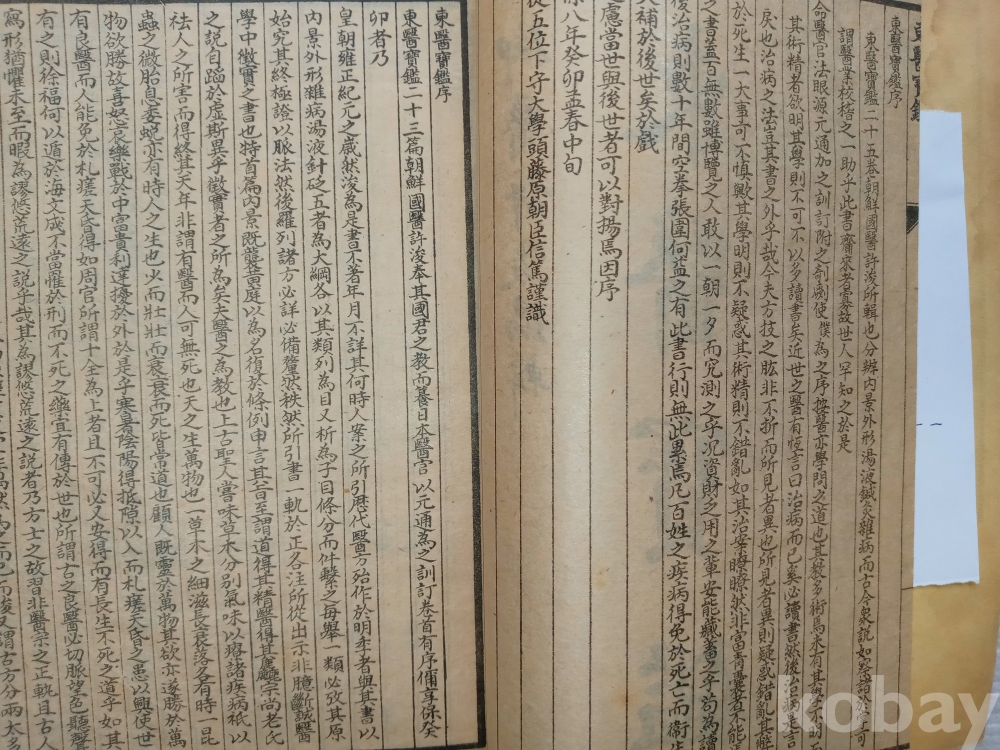 東醫寶鑑序
東醫寶鑑二十五卷朝鮮國醫許浚所輯也分辨內景外形湯液鍼灸雜病而古今衆說如懸諸於
謂醫業之一助乎此書齎來者寡故世人罕知之於是
命醫官法眼源元通加之訓訂附之剞劂使僕為之序按醫亦學問之道也其教多術焉未有其學不明而
其術精者欲明其學則不可不以多讀書矣近世之醫有恆言曰治病而已矣必讀書然後治病是言
戾也治病之法豈其書之外乎哉今夫方技之肱非不折而所見者異也所見者異則疑惑錯亂其解
於死生一大事可不慎歟其學明則不疑惑其術精則不錯亂如其治案瞭瞭然非富青囊者不能
之書蓋百無數雖博覽之人敢以一朝一夕而究測之乎況資財之用乏之輩安能藏蓄之乎苟為讀
後治病則數十年間空拳張圍何益之有此書行則無此累焉凡百姓之疾病得免於死亡而衛生
大補於後世矣於戲
慮當世與後世者可以對揚焉因序
保八年癸卯孟春中旬
從五位下守大學頭藤原朝臣信篤謹識
東醫寶鑑序
東醫寶鑑二十三篇朝鮮國醫許浚奉其國君之教而纂日本醫官以元通為之訓訂卷首有序偁享保癸
卯者乃
皇朝雍正紀元之歲然浚為是書不著年月不詳其何時人案之所引歷代醫方殆作於明季者與其書以
內景外形雜病湯液針砭五者為大綱各以其類列為目又析為子目條分而件繫之每舉一類必攷其原
始究其終極證以脈法然後羅列諸方必詳必備釐然秩然所引書一軌於正各注所從出示非臆斷誠醫
學中徵實之書也特首篇內景既襲黃庭以為名復於條例申言其旨至謂道得其精醫得其麤宗尚老氏
之說自蹈於虛斯異乎徵實者之所為矣夫醫之為教也上古聖人嘗味草木分別氣味以療諸疾病祇以
祛人之所害而得終其天年非謂有醫而人可無死也天之生萬物也一草木之細滋長衰落各有時一昆
蟲之微胎息委蛻亦有時人之生也少而壯壯而衰衰而死皆常道也顧人既靈於萬物其欲亦遂勝於萬
物欲勝故喜怒哀樂戰於中富貴利達擾於外於是乎寒暑陰陽得抵隙以入而札瘥夭昏之患以興使世
有良醫而人能免於札瘥夭昏得如周官所謂十全為上者且不可必又安得而有長生不死之道乎如其
有之則徐福何以遁於海文成不當罹於刑而不死之藥宜有傳於世也所謂古之良醫必切脈望色聽聲
寫形猶懼未至而暇為謬悠荒遠之說乎哉其為謬悠荒遠之說者乃方士之故習非醫宗之正軌且古人
kobay